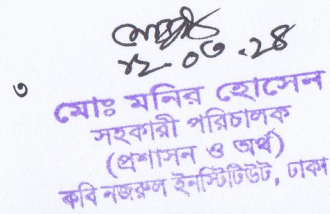 ১২.০৩.২৪
৩
মোঃ মনির হোসেন
সহকারী পরিচালক
(প্রশাসন ও অর্থ)
কবি নজরুল ইনস্টিটিউট, ঢাকা